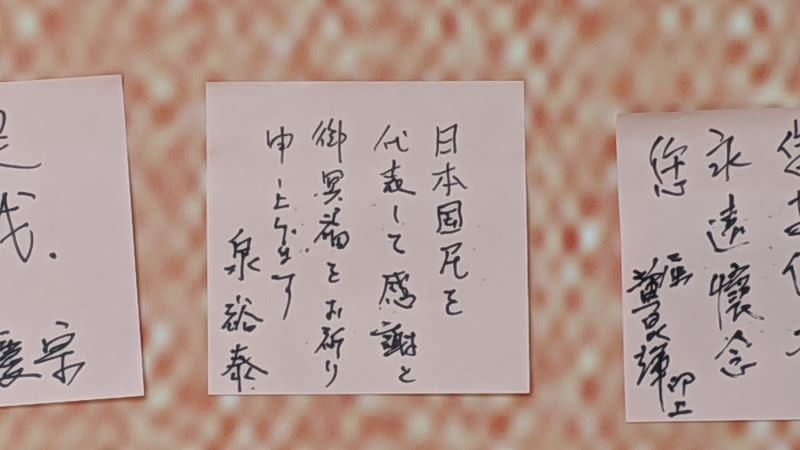 永遠懷念
您
黃昆輝 叩上
日本国民を
代表して感謝と
御冥福をお祈り
申し上げます
泉裕泰
慶宗